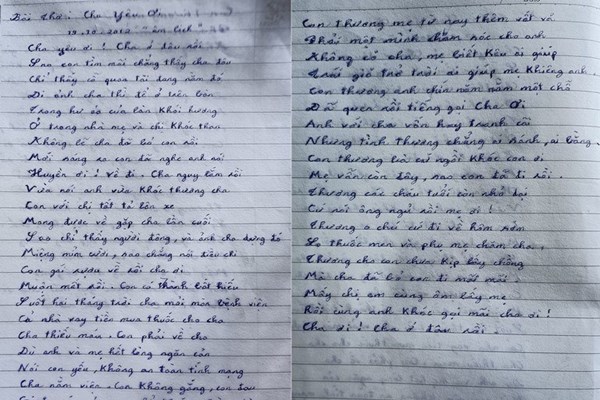 Bài thơ: Cha Yêu Ơi
13.10.2012 âm lịch
Cha yêu ơi! Cha ở đâu rồi
Sao con tìm mãi chẳng thấy cha đâu
Chỉ thấy cỗ quan tài đang nằm đó
Di ảnh cha thì để ở trên bàn
Trong hư ảo của làn khói hương
Ở trong nhà mẹ và chị khóc than
Không lẽ cha đã bỏ con rồi
Mới sáng ra con đã nghe anh nói
Huyền ơi! Về đi. Cha nguy lắm rồi
Vừa nói anh vừa khóc thương cha
Con với chị tất tả lên xe
Mong được về gặp cha lần cuối
Sao chỉ thấy người đông, và ảnh cha dựng đó
Miệng mỉm cười, sao chẳng nói điều chi
Con gái về rồi cha ơi
Muộn mất rồi. Con có thành bất hiếu
Suốt hai tháng trời cha mỏi mòn bệnh viện
Cả nhà vay tiền mua thuốc cho cha
Cha thiếu máu. Con phải về cho
Dù anh và mẹ hết lòng ngăn cản
Nói con yếu, không an toàn tính mạng
Cha nằm viện. Con không gắng, con đau
Con thương mẹ từ nay thêm vất vả
Phải một mình chăm sóc cho anh
Không có cha, mẹ biết kêu ai giúp
Trái gió trở trời ai giúp mẹ khiêng anh.
Con thương anh chín năm nằm một chỗ
Đã quen rồi tiếng gọi Cha ơi
Anh với cha vẫn hay tranh cãi
Nhưng tình thương chẳng ai sánh, ai bằng.
Con thương bà cứ ngồi khóc con ơi
Mẹ vẫn còn đây, sao con đã đi rồi.
Thương các cháu tuổi còn nhỏ dại
Cứ nói ông ngủ rồi mẹ ơi!
Thương o chú cứ đi về hôm sớm
Lo thuốc men và phụ mẹ chăm cha.
Thương cho con chưa kịp lấy chồng
Mà cha đã bỏ con đi mất mãi
Mấy chị em cùng ôm lấy mẹ
Rồi cùng anh khóc gọi mãi cha ơi!
Cha ơi! Cha ở đâu rồi.